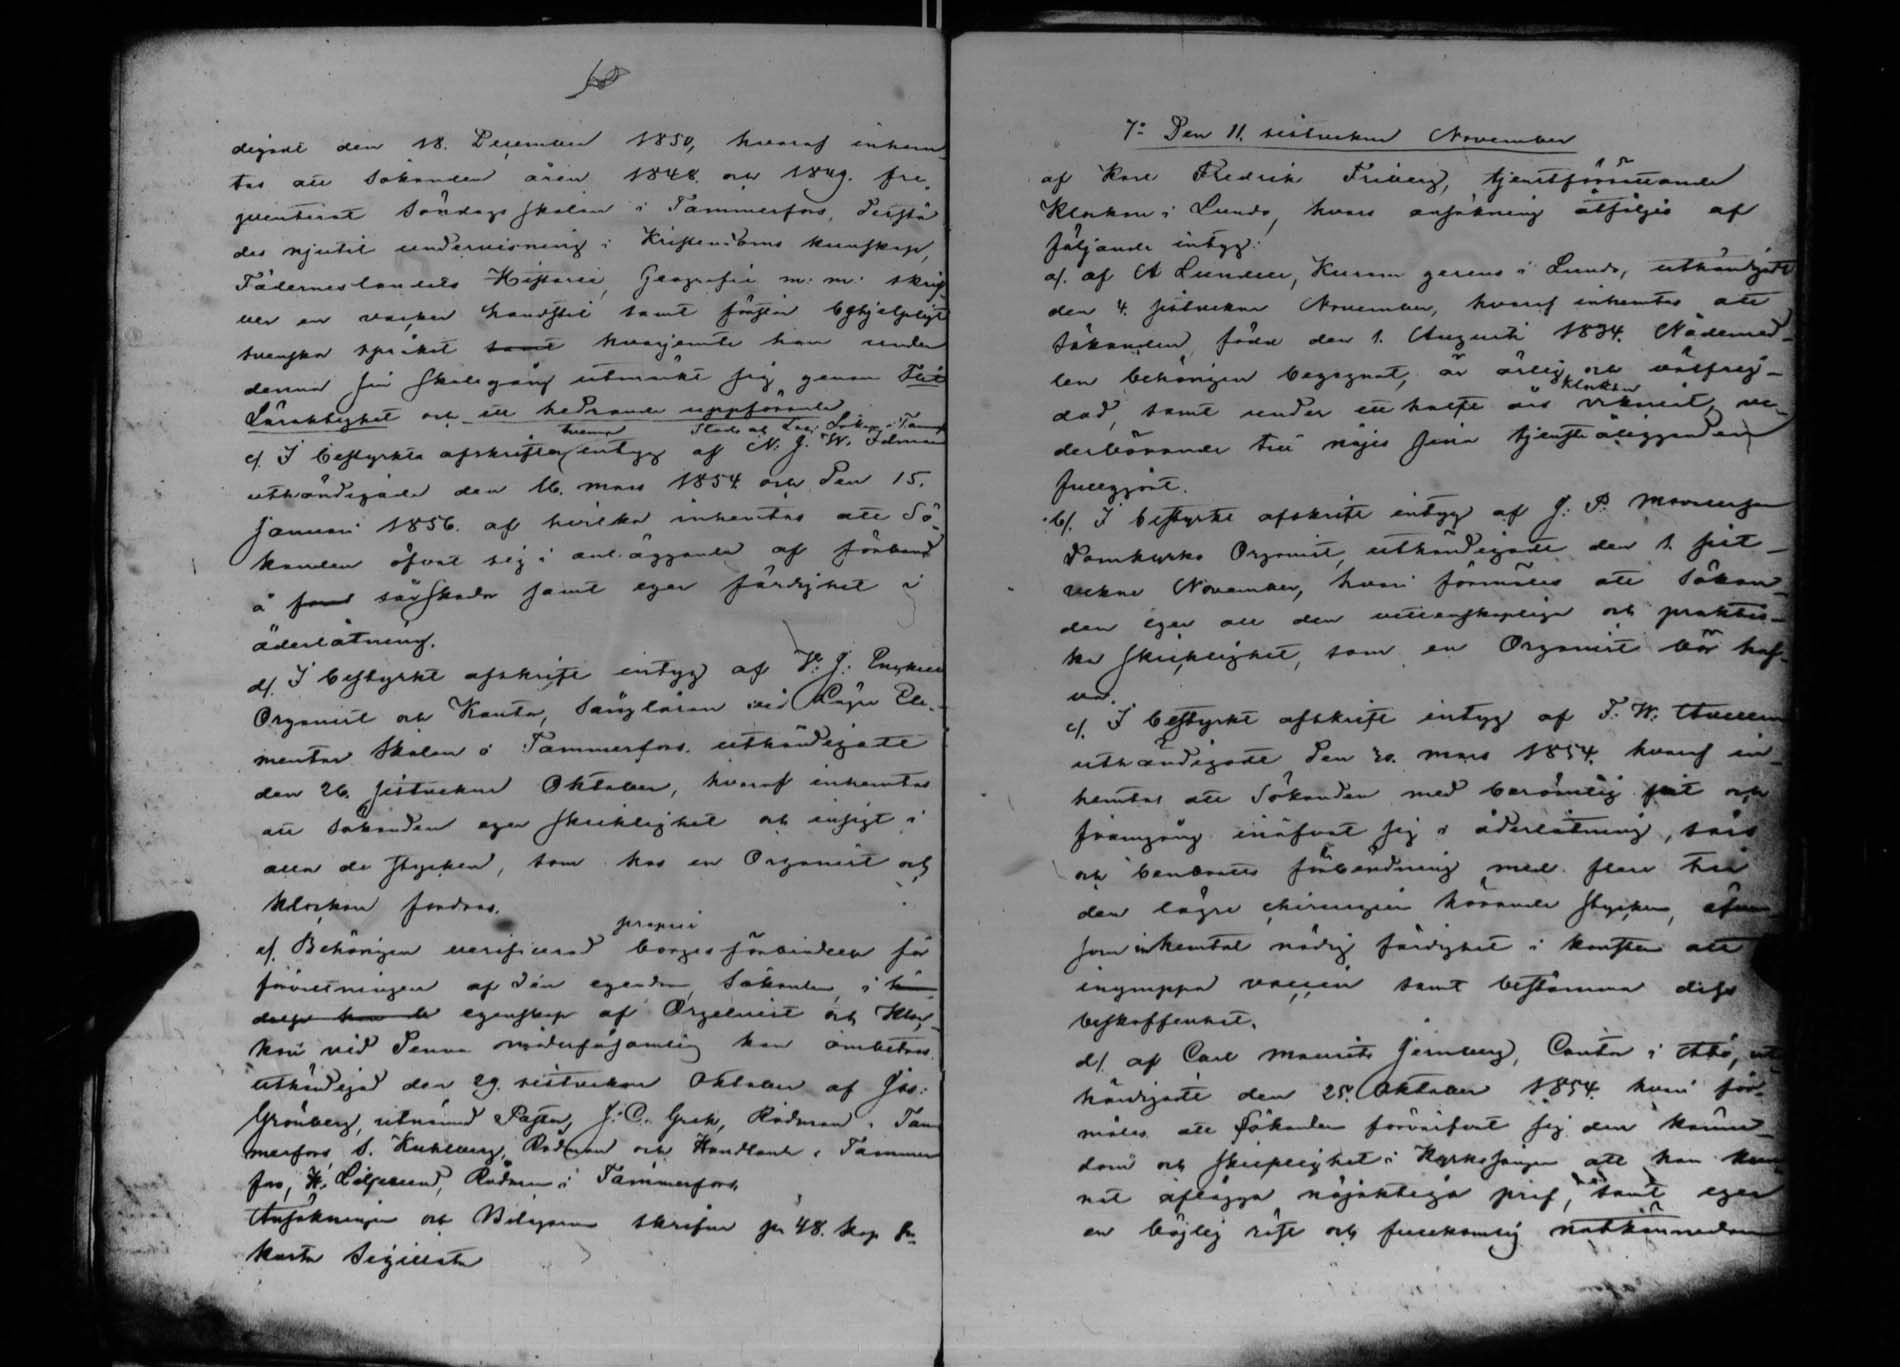 digadt den 18. December 1850, hvaraf inhem-
tas att Sökanden åren 1848. och 1849. fre-
quenterat Söndags Skolan i Tammerfors, derstä
des njutit undervisning i Kristendoms kunskap,
Fäderneslandets Historie, Geografie m. m. skrif-
ver en vacker handstil samt förstår hjelpligt
svenska språket samt hvarjemte han under
denna sin Skolegång utmärkt sig genom Flit
Läraktighet och ett hedrande uppförande
tvenne Stads
c/. I bestyrkta afskrifter intyg af N. J. W.
uthändigade den 16. mars 1854 och den 15.
Januari 1856. af hvilka inhemtas att Sö-
kanden öfvat sig i anläggande af förband
å sårskador samt eger färdighet i
åderlåtning.
d/. I bestyrkt afskrift intyg af
Organist och Kantor, Sånglärare vid Lägre Ele-
mentar Skolan i Tammerfors uthändigadt
den 26. sistvekne Oktober, hvaraf inhemtas
att Sökanden eger skicklighet och insigt i
alla de stycken, som hos en Organist och
klockare fordras.
proprie
e/. Behörigen verificerad borgesförbindelse för
förvaltningen af den egendom Sökanden, i
egenskap af Orgelnist och Kloc-
kare vid denna moderförsamling kan ombetros
uthändigad den 29. sistvekne Oktober af Joh:
Grönberg, utnämnd Pastor, J. C. Grek, Rådman i Tam
merfors, S. Kuhlberg, Rådman och Handlande i Tammer
fors, K. Liljerund, Rådman i Tammerfors
Ansökningen och Bilagorne skrifne på 48. kop
karta Sigillata
7:o Den 11. sistvekne November
af Karl Fredrik Friberg, tjenstförrättande
Klockare i Lundo, hvars ansökning åtföljes af
följande intyg:
a/. af A Lundell, Kuram gerens i Lundo, uthändigadt
den 4. sistvekne November, hvaraf inhemtas att
Sökanden, född den 1. Augusti 1834. Nådemed-
len behörigen begagnat, är ärlig och välfrej-
dad, samt under ett halft års
Klockare
derbörande till nöjes sina tjenståligganden
fullgjort.
b/. I bestyrkt afskrift intyg af J. P.
Domkyrko Organist, uthändigadt den 1. sist-
vekne November, hvari förmäles att Sökan-
den eger all den vettenskapliga och praktis-
ka skicklighet, som en Organist bör haf-
va.
c/. I bestyrkt afskrift intyg af F. W.
uthändigadt den 20. mars 1854. hvaraf in-
hemtas att Sökanden med berömlig flit och
framgång inöfvat sig i åderlåtning, sårs
och benbrotts förbindning med flere till
den lägre chirurgien hörande stycken, äfven
som inhemtat nödig färdighet i konsten att
inympa vaccin samt bestämma dess
beskaffenhet.
d/. af Carl Maurits Jernberg, Cantor i Åbo, ut
händigadt den 25. Oktober 1854. hvari för-
mäles att Sökanden förvärfvat sig den känne-
dom och skicklighet i Kyrkosången att han kun-
nat aflägga nöjaktiga prof, samt eger
en böjlig röst och fullkomlig notkännedom